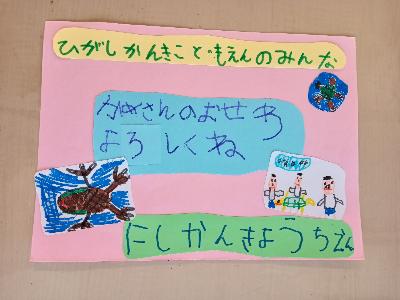 ひがしかんきこどもえんのみんな
かめさんのおせわ
よろしくね
にしかんきようちえん